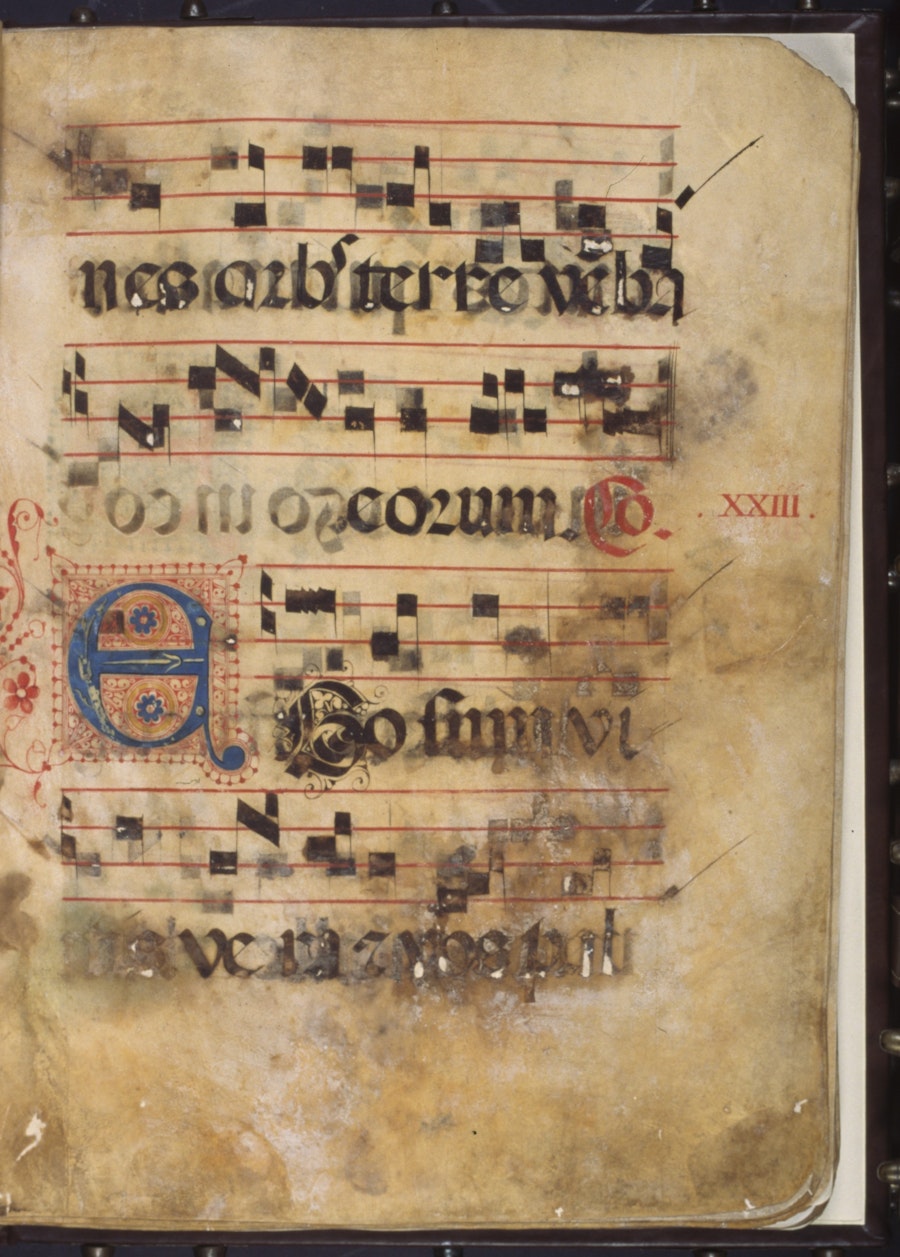 nes orbˢ terre v̄ba
eorum. Co. . XXIII .
EGo sum vi
tis ve ra ⁊ vos pal